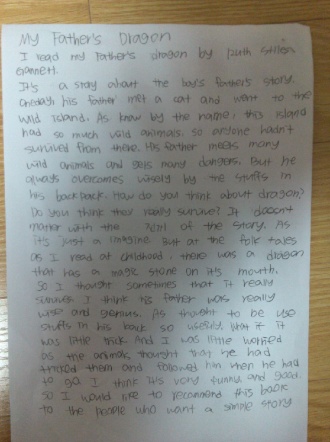 My Father's Dragon
I read my father's dragon by Ruth Stiles
Gannett.
It's a story about the boy's father's story.
Oneday his father met a cat and went to the
wild island. As know by the name, this island
had so much wild animals. so anyone hadn't
survived from there. His father meets many
wild animals and gets many dangers. But he
always overcomes wisely by the stuffs in
his backpack. How do you think about dragon?
Do you think they really survive? It doesn't
matter with the of the story. As
it's just a imagine. But at the folk tales
as I read at childhood, there was a dragon
that has a magic stone on it's mouth.
So I thought sometimes that it really
survives. I think his father was really
wise and genius. As thought to be use
stuffs in his back so usefully. But it
was little trick. And I was little worried
as the animals thought that he had
tricked them and followed him when he had
to go. I think it's very funny and good.
so I would like to recommend this book
to the people who want a simple story